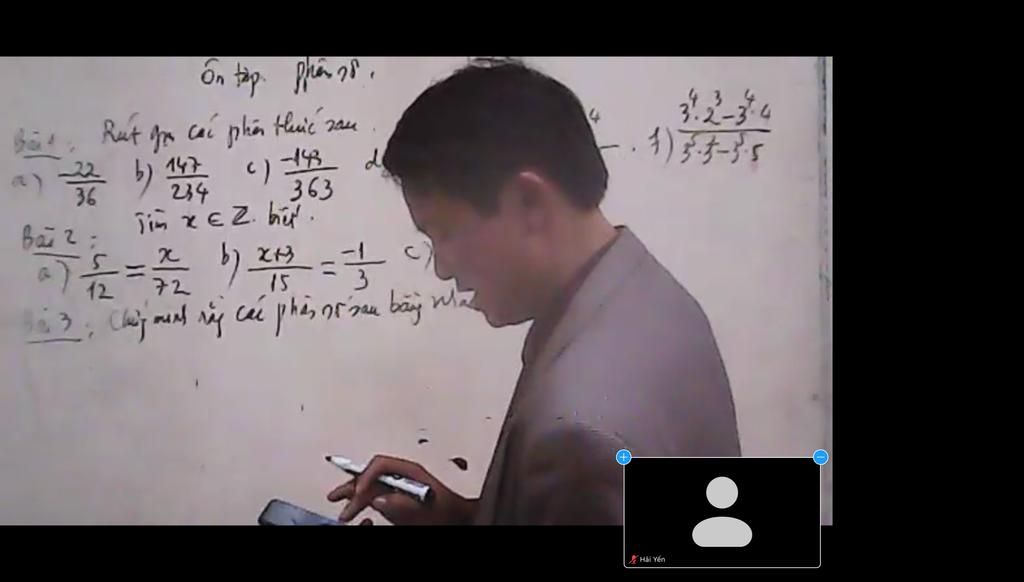 Ôn tập. phân số.
Bài 1: Rút gọn các phân thức sau.
a) -22/36 b) 147/234 c) -143/363 d 4 . f) 3^4·2^3-3^4·4/
Bài 2: Tìm x ∈ Z. biết.
a) 5/12 = x/72 b) x+3/15 = -1/3 c)
Bài 3: Chứng minh rằng các phân số sau bằng nha
Hải Yến